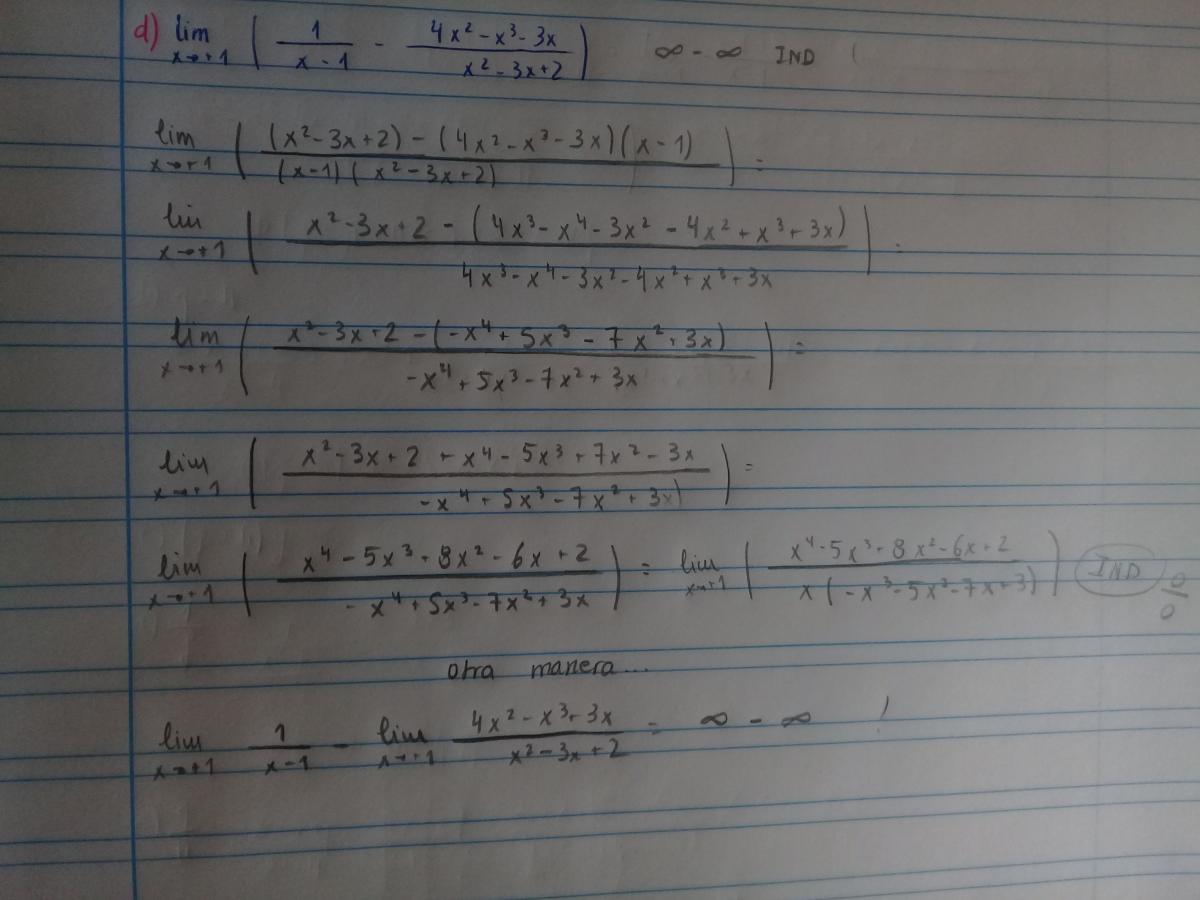 d) lim x→+1 ( 1/(x-1) - (4x² - x³ - 3x)/(x² - 3x + 2) ) ∞ - ∞ IND
lim x→+1 ( ((x² - 3x + 2) - (4x² - x³ - 3x)(x - 1))/((x-1)(x² - 3x + 2)) ) =
lim x→+1 ( (x² - 3x + 2 - (4x³ - x⁴ - 3x² - 4x² + x³ + 3x))/(4x³ - x⁴ - 3x² - 4x² + x³ + 3x) ) =
lim x→+1 ( (x² - 3x + 2 - (-x⁴ + 5x³ - 7x² + 3x))/(-x⁴ + 5x³ - 7x² + 3x) ) =
lim x→+1 ( (x² - 3x + 2 + x⁴ - 5x³ + 7x² - 3x)/(-x⁴ + 5x³ - 7x² + 3x) ) =
lim x→+1 ( (x⁴ - 5x³ + 8x² - 6x + 2)/(-x⁴ + 5x³ - 7x² + 3x) ) = lim x→+1 ( (x⁴ - 5x³ + 8x² - 6x + 2)/(x(-x³ - 5x² - 7x + 3)) ) IND 0/0
otra manera...
lim x→+1 1/(x-1) - lim x→+1 (4x² - x³ + 3x)/(x² - 3x + 2) = ∞ - ∞ !